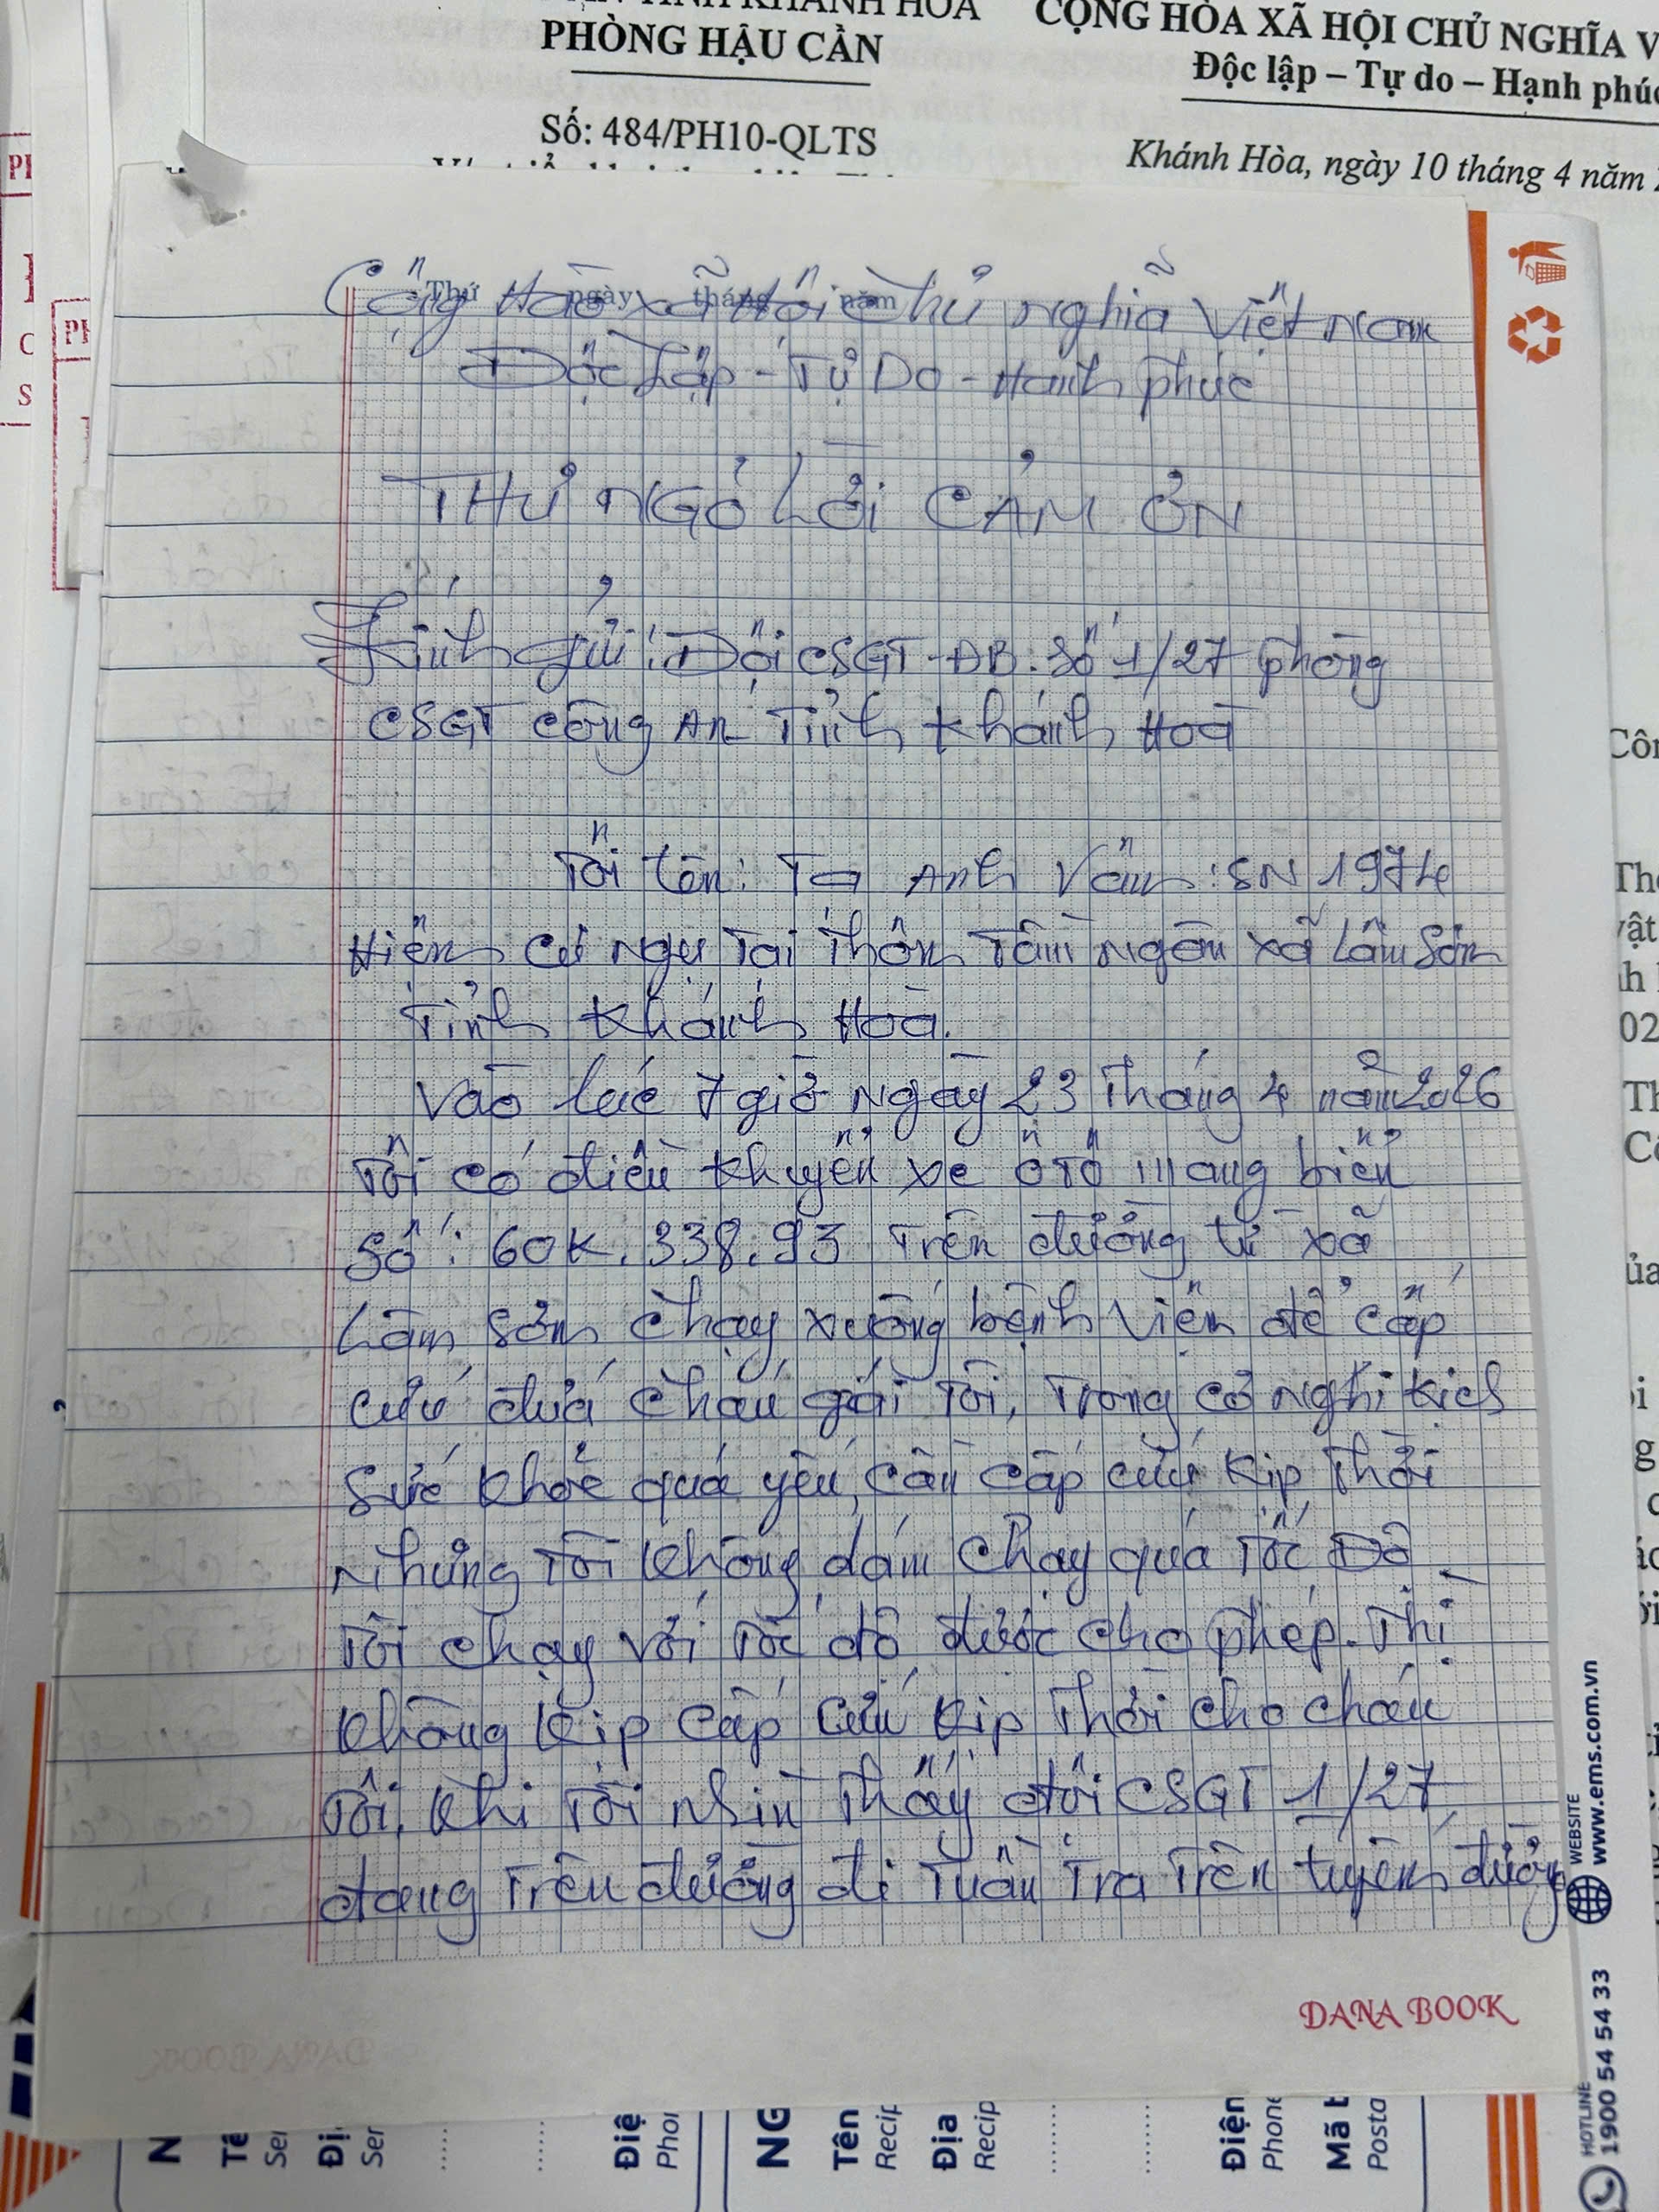 PHÒNG HẬU CẦN
CỘNG HÒA XÃ HỘI CHỦ NGHĨA V
Độc lập – Tự do – Hạnh phúc
Số: 484/PH10-QLTS
Khánh Hòa, ngày 10 tháng 4 năm
Thứ ngày tháng năm
Cộng Hoà xã Hội Chủ nghĩa Việt Nam
Độc Lập - Tự Do - Hạnh phúc
THƯ NGỎ LỜI CẢM ƠN
Kính gửi: Đội CSGT-ĐB. Số 1/27 phòng
CSGT Công An Tỉnh Khánh Hoà
Tôi tên: Tạ Anh Văn: SN 1974
Hiện cư ngụ Tại Thôn Tầm Ngân xã Lâm Sơn
Tỉnh Khánh Hoà.
Vào lúc 7 giờ Ngày 23 Tháng 4 năm 2026
Tôi có điều khuyển xe ôTô mang biển
Số: 60K. 338.93 Trên đường từ xã
Lâm Sơn Chạy xuống bệnh Viện để cấp
cứu đứa Cháu gái Tôi, Trong cơ Nghi kịch
Sức khỏe quá yếu, cần cấp cứu kịp Thời
Nhưng Tôi không dám Chạy quá Tốc Độ
Tôi chạy với Tốc độ được cho phép. Thì
không kịp cấp cứu kịp Thời cho cháu
Tôi. khi Tôi nhìn Thấy đội CSGT 1/27
đang Trên đường đi Tuần Tra Trên tuyến đường
DANA BOOK
WEBSITE
www.ems.com.vn
HOTLINE
1900 54 54 33
Điện
Phone
Tên
Recip
Địa
Recip
Posta